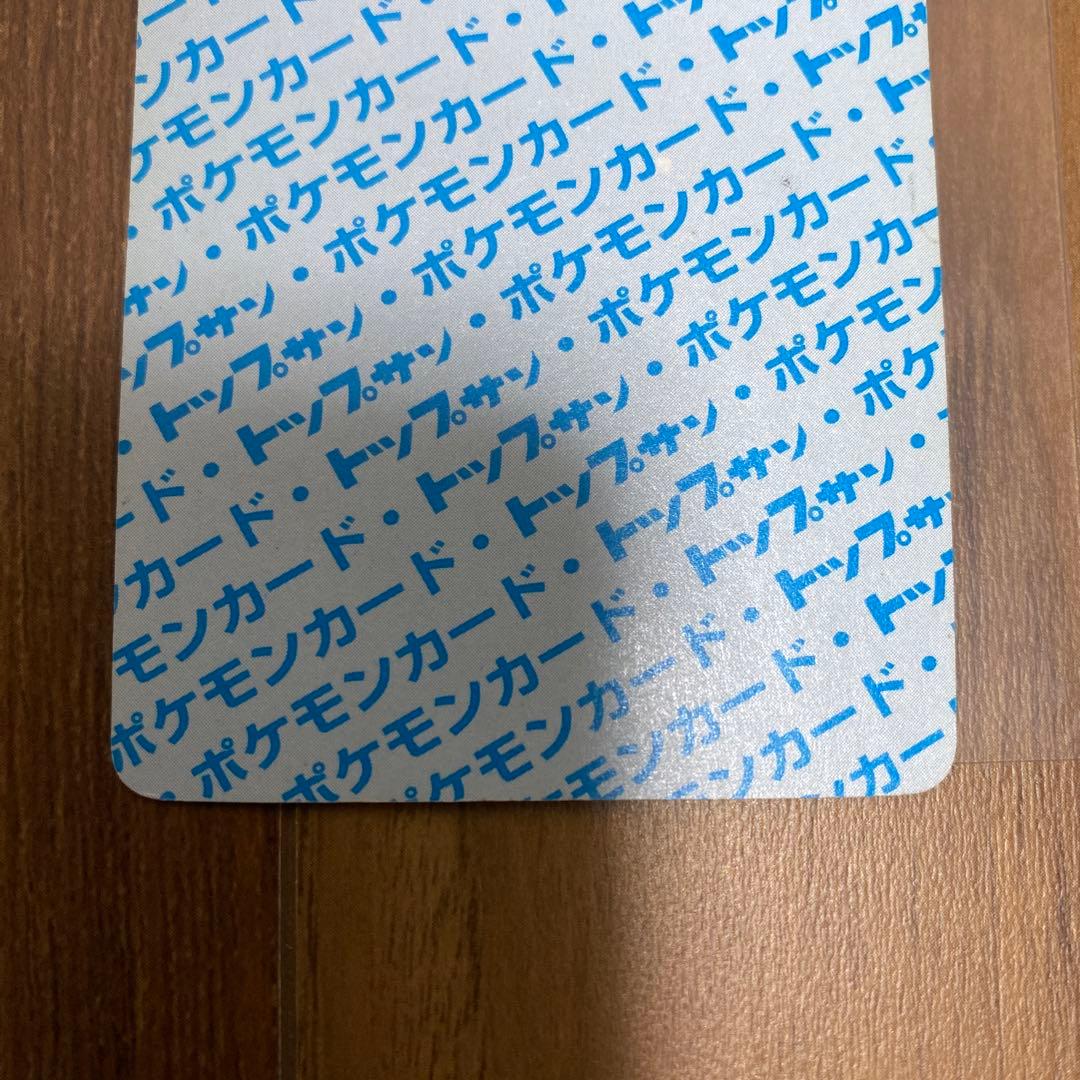 ンカード
ケモンカード・
・ポケモンカード・
サン・ポケモンカード・ト
ップサン・ポケモンカード・トップ
・トップサン・ポケモンカード・トップサ
ード・トップサン・ポケモンカード・トッ
ンカード・トップサン・ポケモンカード・
モンカード・トップサン・ポケモンカー
ポケモンカード・トップサン・ポケモン
・ポケモンカード・トップサン・ポケ
ポケモンカード・トップサン・
ケモンカード・トップサ
モンカード・トップ
ンカード・
カー